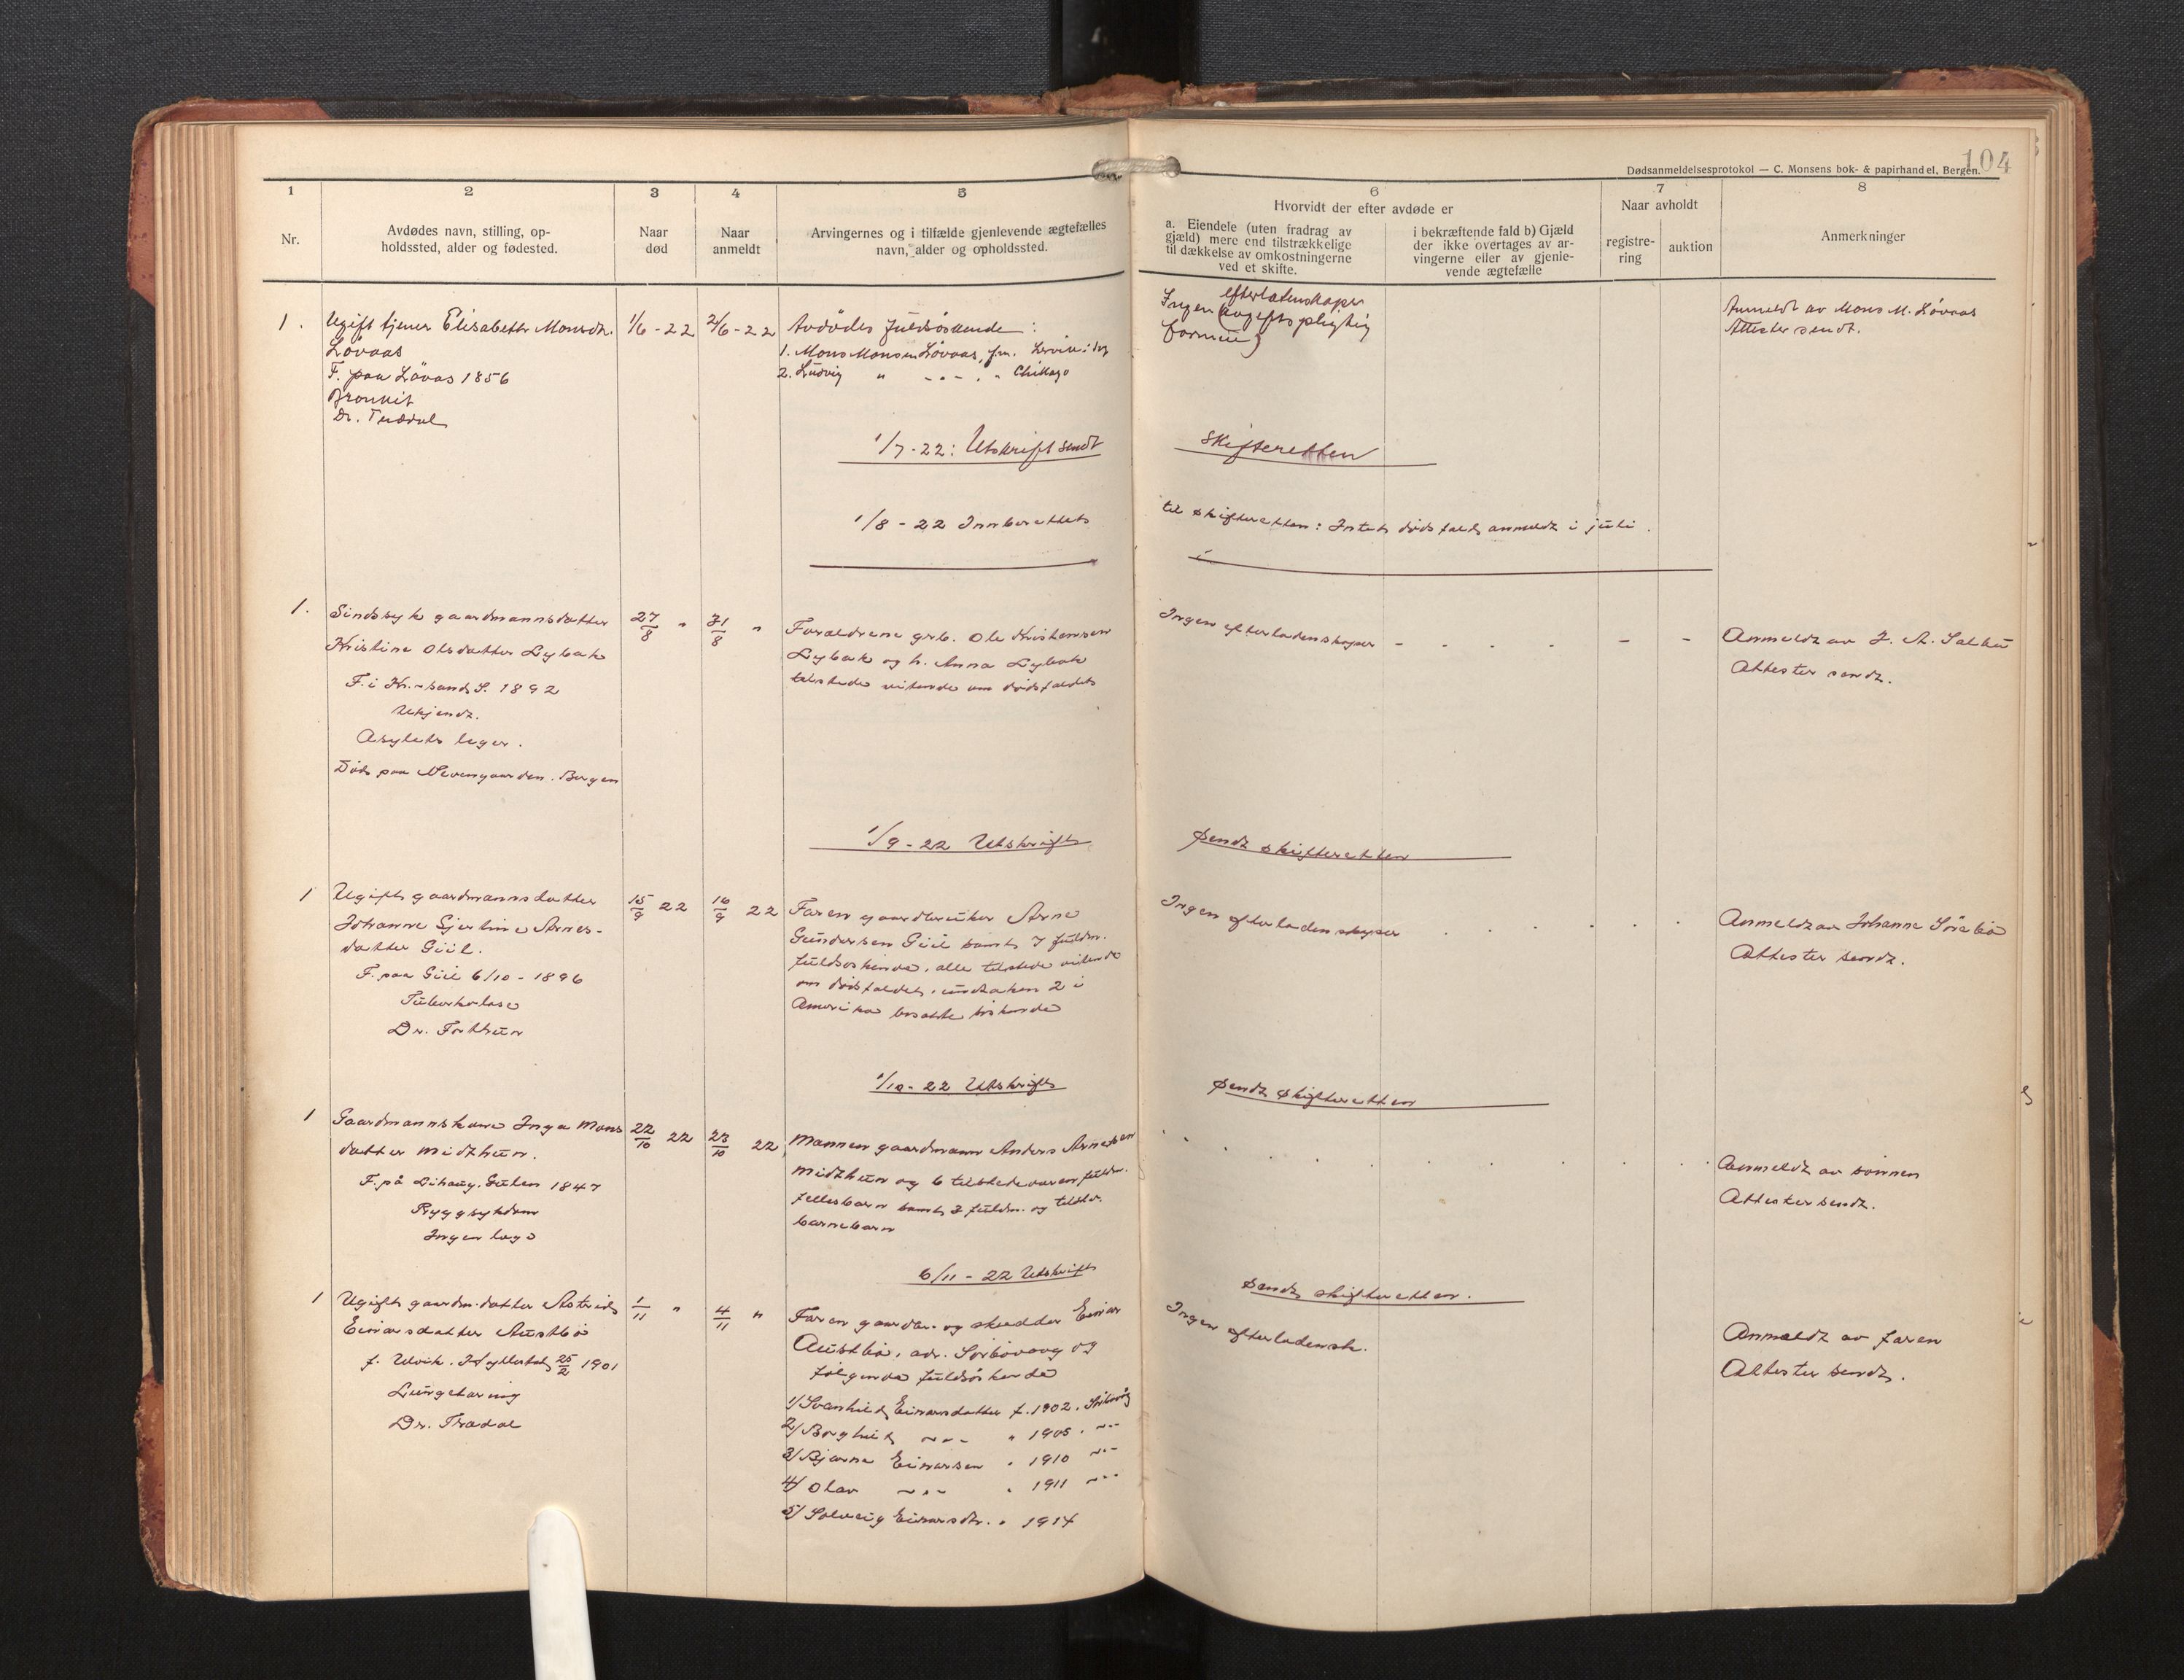 104
Dødsanmeldelsesprotokol — C. Monsens bok- & papirhandel, Bergen.
1 2 3 4 5 6 7 8
Nr.
Avdødes navn, stilling, op-
holdssted, alder og fødested.
Naar
død
Naar
anmeldt
Arvingernes og i tilfælde gjenlevende ægtefælles
navn, alder og opholdssted.
Hvorvidt der efter avdøde er
a. Eiendele (uten fradrag av
gjæld) mere end tilstrækkelige
til dækkelse av omkostningerne
ved et skifte.
i bekræftende fald b) Gjæld
der ikke overtages av ar-
vingerne eller av gjenle-
vende ægtefælle
Naar avholdt
registre-
ring
auktion
Anmerkninger
1.
Ugift tjener Elisabeth Monsdr.
Løvaas
F. paa Løvaas 1856
Bronkit
Dr. Trædal
1/6 - 22
2/6 - 22
Avdødes fuldsøskende :
1. Mons Monsen Løvaas, fm.
2. Ludvig " - " - . " Chikago
Ingen efterlatenskaper
(avgiftspligtig
formue)
Anmeldt av Mons M. Løvaas
Attester sendt.
1/7 - 22: Utskrift sendt
skifteretten
1/8 - 22 Innberettet
til skifteretten: Intet dødsfald anmeldt i juli.
1.
Sindssyk gaardmannsdatter
Kristine Olsdatter Lybak
F. i Kr.-sand S. 1892
Ukjendt.
Asylets leger.
Død paa Nevengaarden. Bergen
27/8 "
31/8 "
Forældrene grb. Ole Kristensen
Lybak og h. Anna Lybak
tilstede vitende om dødsfaldet
Ingen efterladenskaper - - - - - -
Anmeldt av J. A.
Attester sendt.
1/9 - 22 Utskrift
sendt skifteretten
1
Ugift gaardmannsdatter
Johanne Gjertine Arnes-
datter Giil.
F. paa Giil 6/10 - 1896
Tuberkulose
Dr. Forthun
15/9 22
16/9 22
Faren gaardbruker Arne
Gundersen Giil samt 7 fuldm.
fuldsøskende, alle tilstede vitende
om dødsfaldet, undtaken 2 i
Amerika bosatte søskende
Ingen efterladenskaper . . . . . .
Anmeldt av Johanne Sørebø
Attester sendt.
1/10 - 22 Utskrift
sendt skifteretten
1
Gaardmannskone Inga Mons
datter Midthun.
F. på Dihaug, Gulen 1847
Ryggsykdom
Ingen læge
22/10 22
23/10 22
Mannen gaardmann Anders Arnesen
Midthun og 6 tilstedeværen fuldm.
fellesbarn samt 3 fuldm. og tilstv.
barnebarn
Anmeldt av sønnen
Attester sendt.
6/11 - 22 Utskrift
sendt skifteretten.
1
Ugift gaardm.datter Astrid
Einarsdatter Austbø
f. Ulvik. Hyllestad 25/2 1901
Lungetæring
Dr. Trædal
1/11 "
4/11 "
Faren gaardbr. og skredder Einar
Austbø, adr. Sørbøvaag og
følgende fuldsøskende
1/ Svanhild Einarsdatter f. 1902. Sørbøvåg
2/ Borghild ~ " - " 1905. ~"-
3/ Bjarne Einarsen " 1910 ~"-
4/ Olav ~ " ~ " 1911 ~"-
5/ Solveig Einarsdtr. " 1914
Ingen efterladensk.
Anmeldt av faren
Attester sendt.